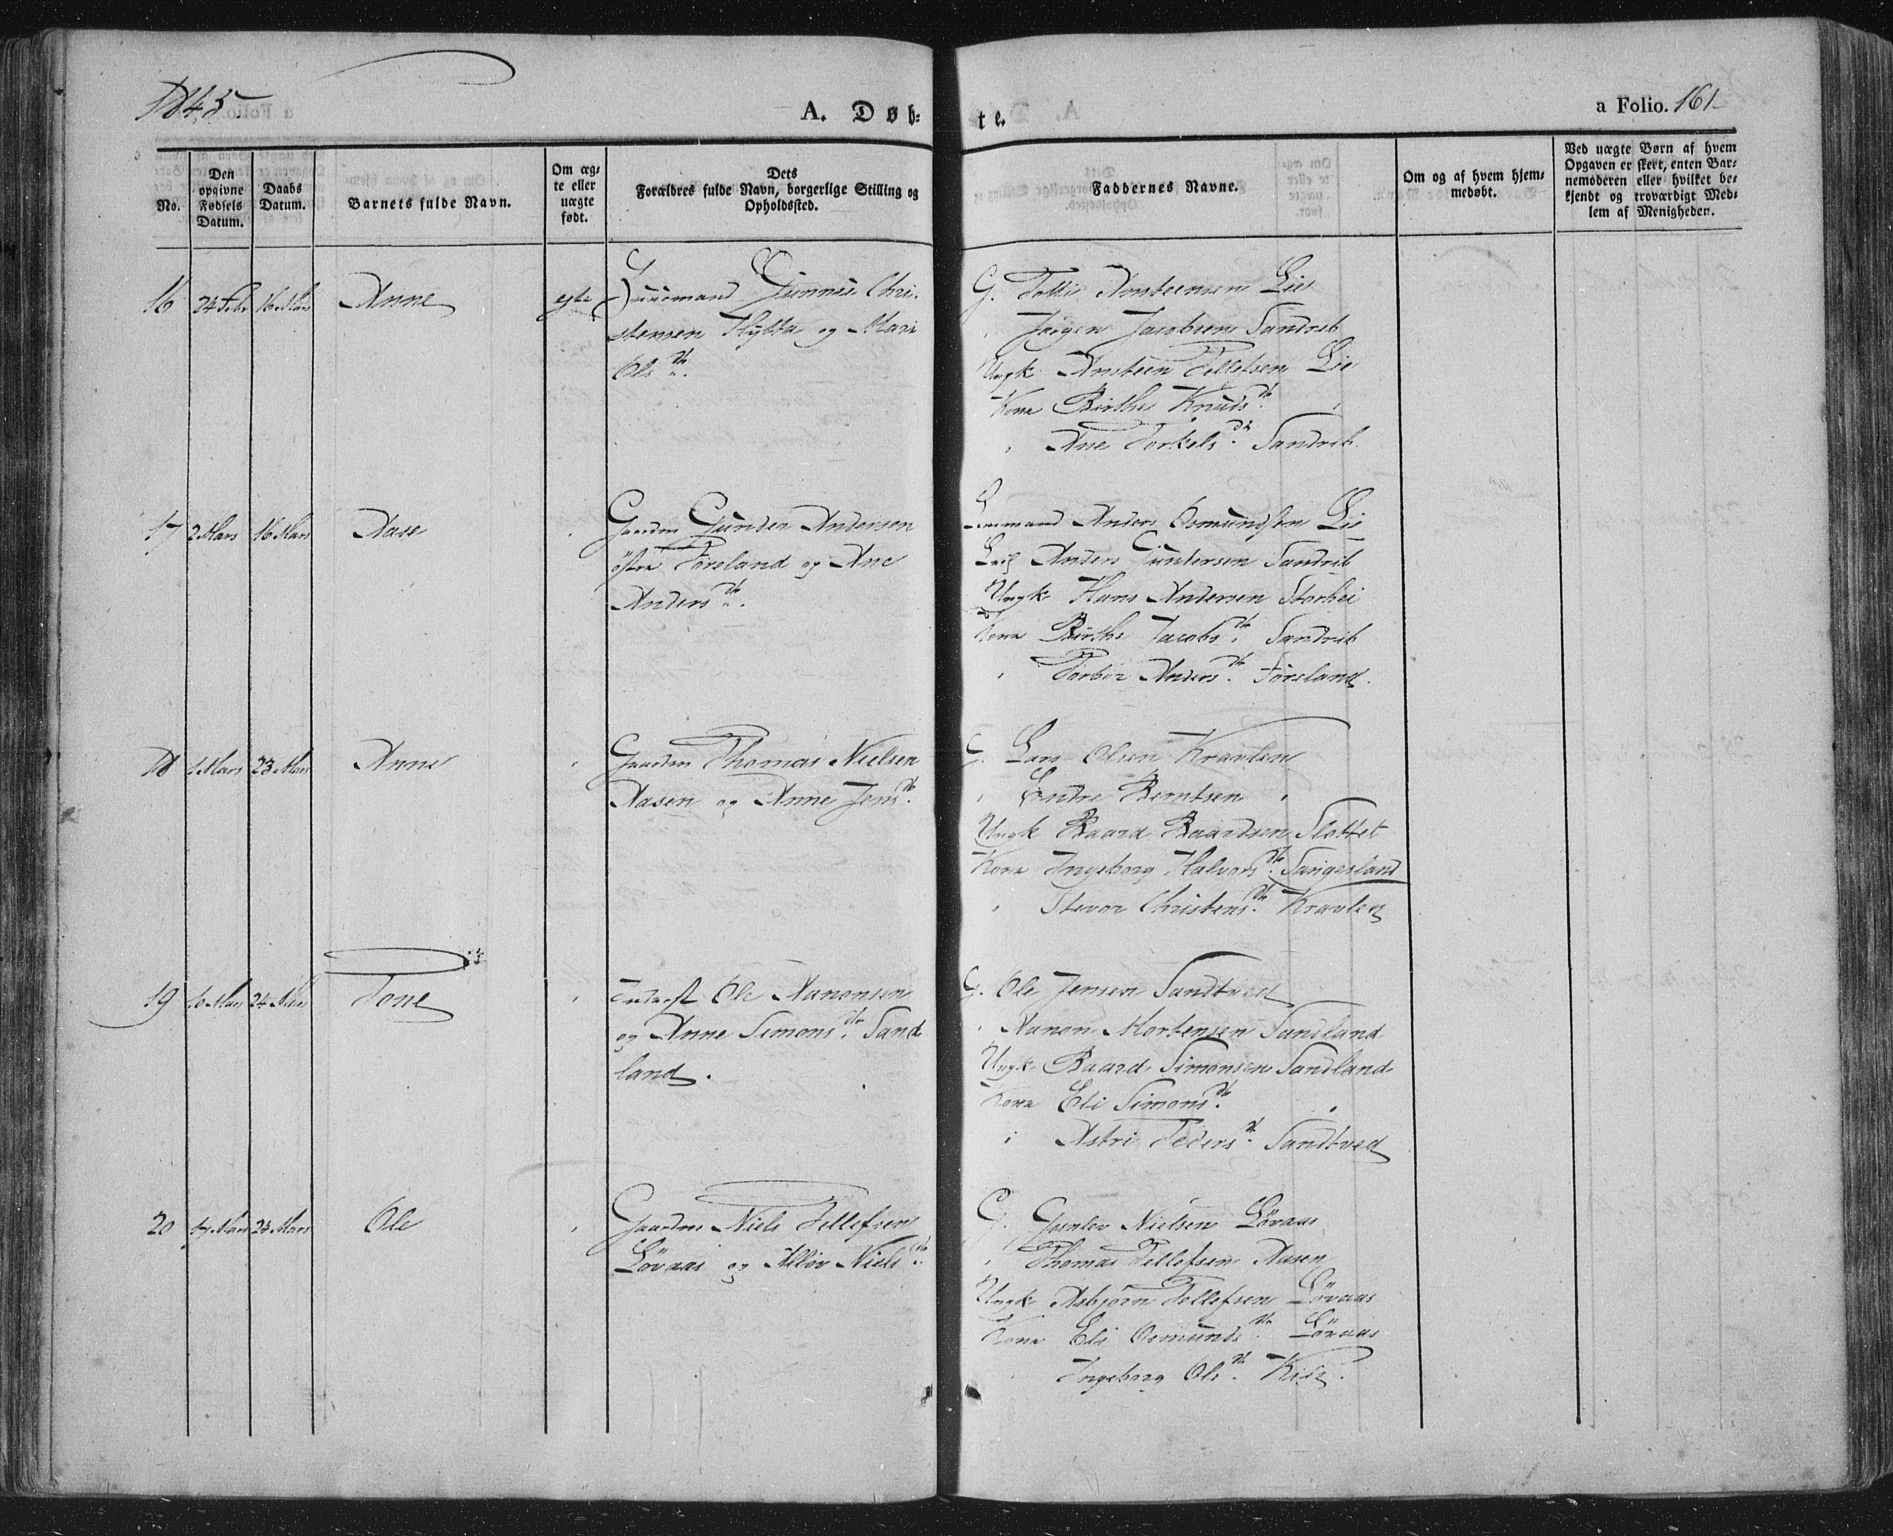 1845
A. Døb-
te.
a Folio. 161
No.
Den opgivne Fødsels Datum.
Daabs Datum.
Barnets fulde Navn.
Om ægte eller uægte født.
Dets Forældres fulde Navn, borgerlige Stilling og Opholdssted.
Faddernes Navne.
Om og af hvem hjemmedøbt.
Ved uægte Børn af hvem Opgaven er skeet, enten Barnemoderen eller hvilket bekjendt og troværdigt Medlem af Menigheden.
16 24 Febr 16 Mars Anne egte Huusmand Gunnar Chri-
stensen Hytta og Mari
Ols dtr.
G. Tollis Ansteensen Lie
Jörgen Jacobsen Sandrib
Ungk Ansteen Tellefsen Lie
Kone Birthe Knuds dtr.
Ane Torkels dtr. Sandrib
17 2 Mars 16 Mars Aase Gaardm Gunder Andersen
østre Føreland og Ane
Anders dtr.
Anders Osmundsen Lie
Anders Gundersen Sandrib
Ungk Hans Andersen Storhei
Kone Birthe Jacobs dtr. Sandrib
Torbor Anders dtr. Føreland.
18 1 Mars 23 Mars Anne Gaardm Thomas Nielsen
Aasen og Anne Jens dtr.
G. Lars Olsen Kravlen
Endre Berntsen
Ungk Baard Baardsen Slottet
Kone Ingeborg Halvors dtr. Sangesland
Stevor Christens dtr. Kravlen
19 10 Mars 24 Mars Tone Inderst Ole Aanonsen
og Anne Simons dtr. Sand
land.
G. Ole Jensen Sandtved
Aanon Mortensen Sandland
Ungk Baard Simonsen Sandland
Kone Eli Simons dtr.
Astri Peders dtr. Sandtved
20 17 Mars 24 Mars Ole Gaardm Niels Tellefsen
Løvaas og Alløv Niels dtr.
G. Gunlev Nielsen Løvaas
Thomas Tellefsen Aasen
Ungk Asbjørn Tellefsen Løvaas
Kone Eli Osmunds dtr. Løvaas
Ingeborg Ols dtr. Kile.